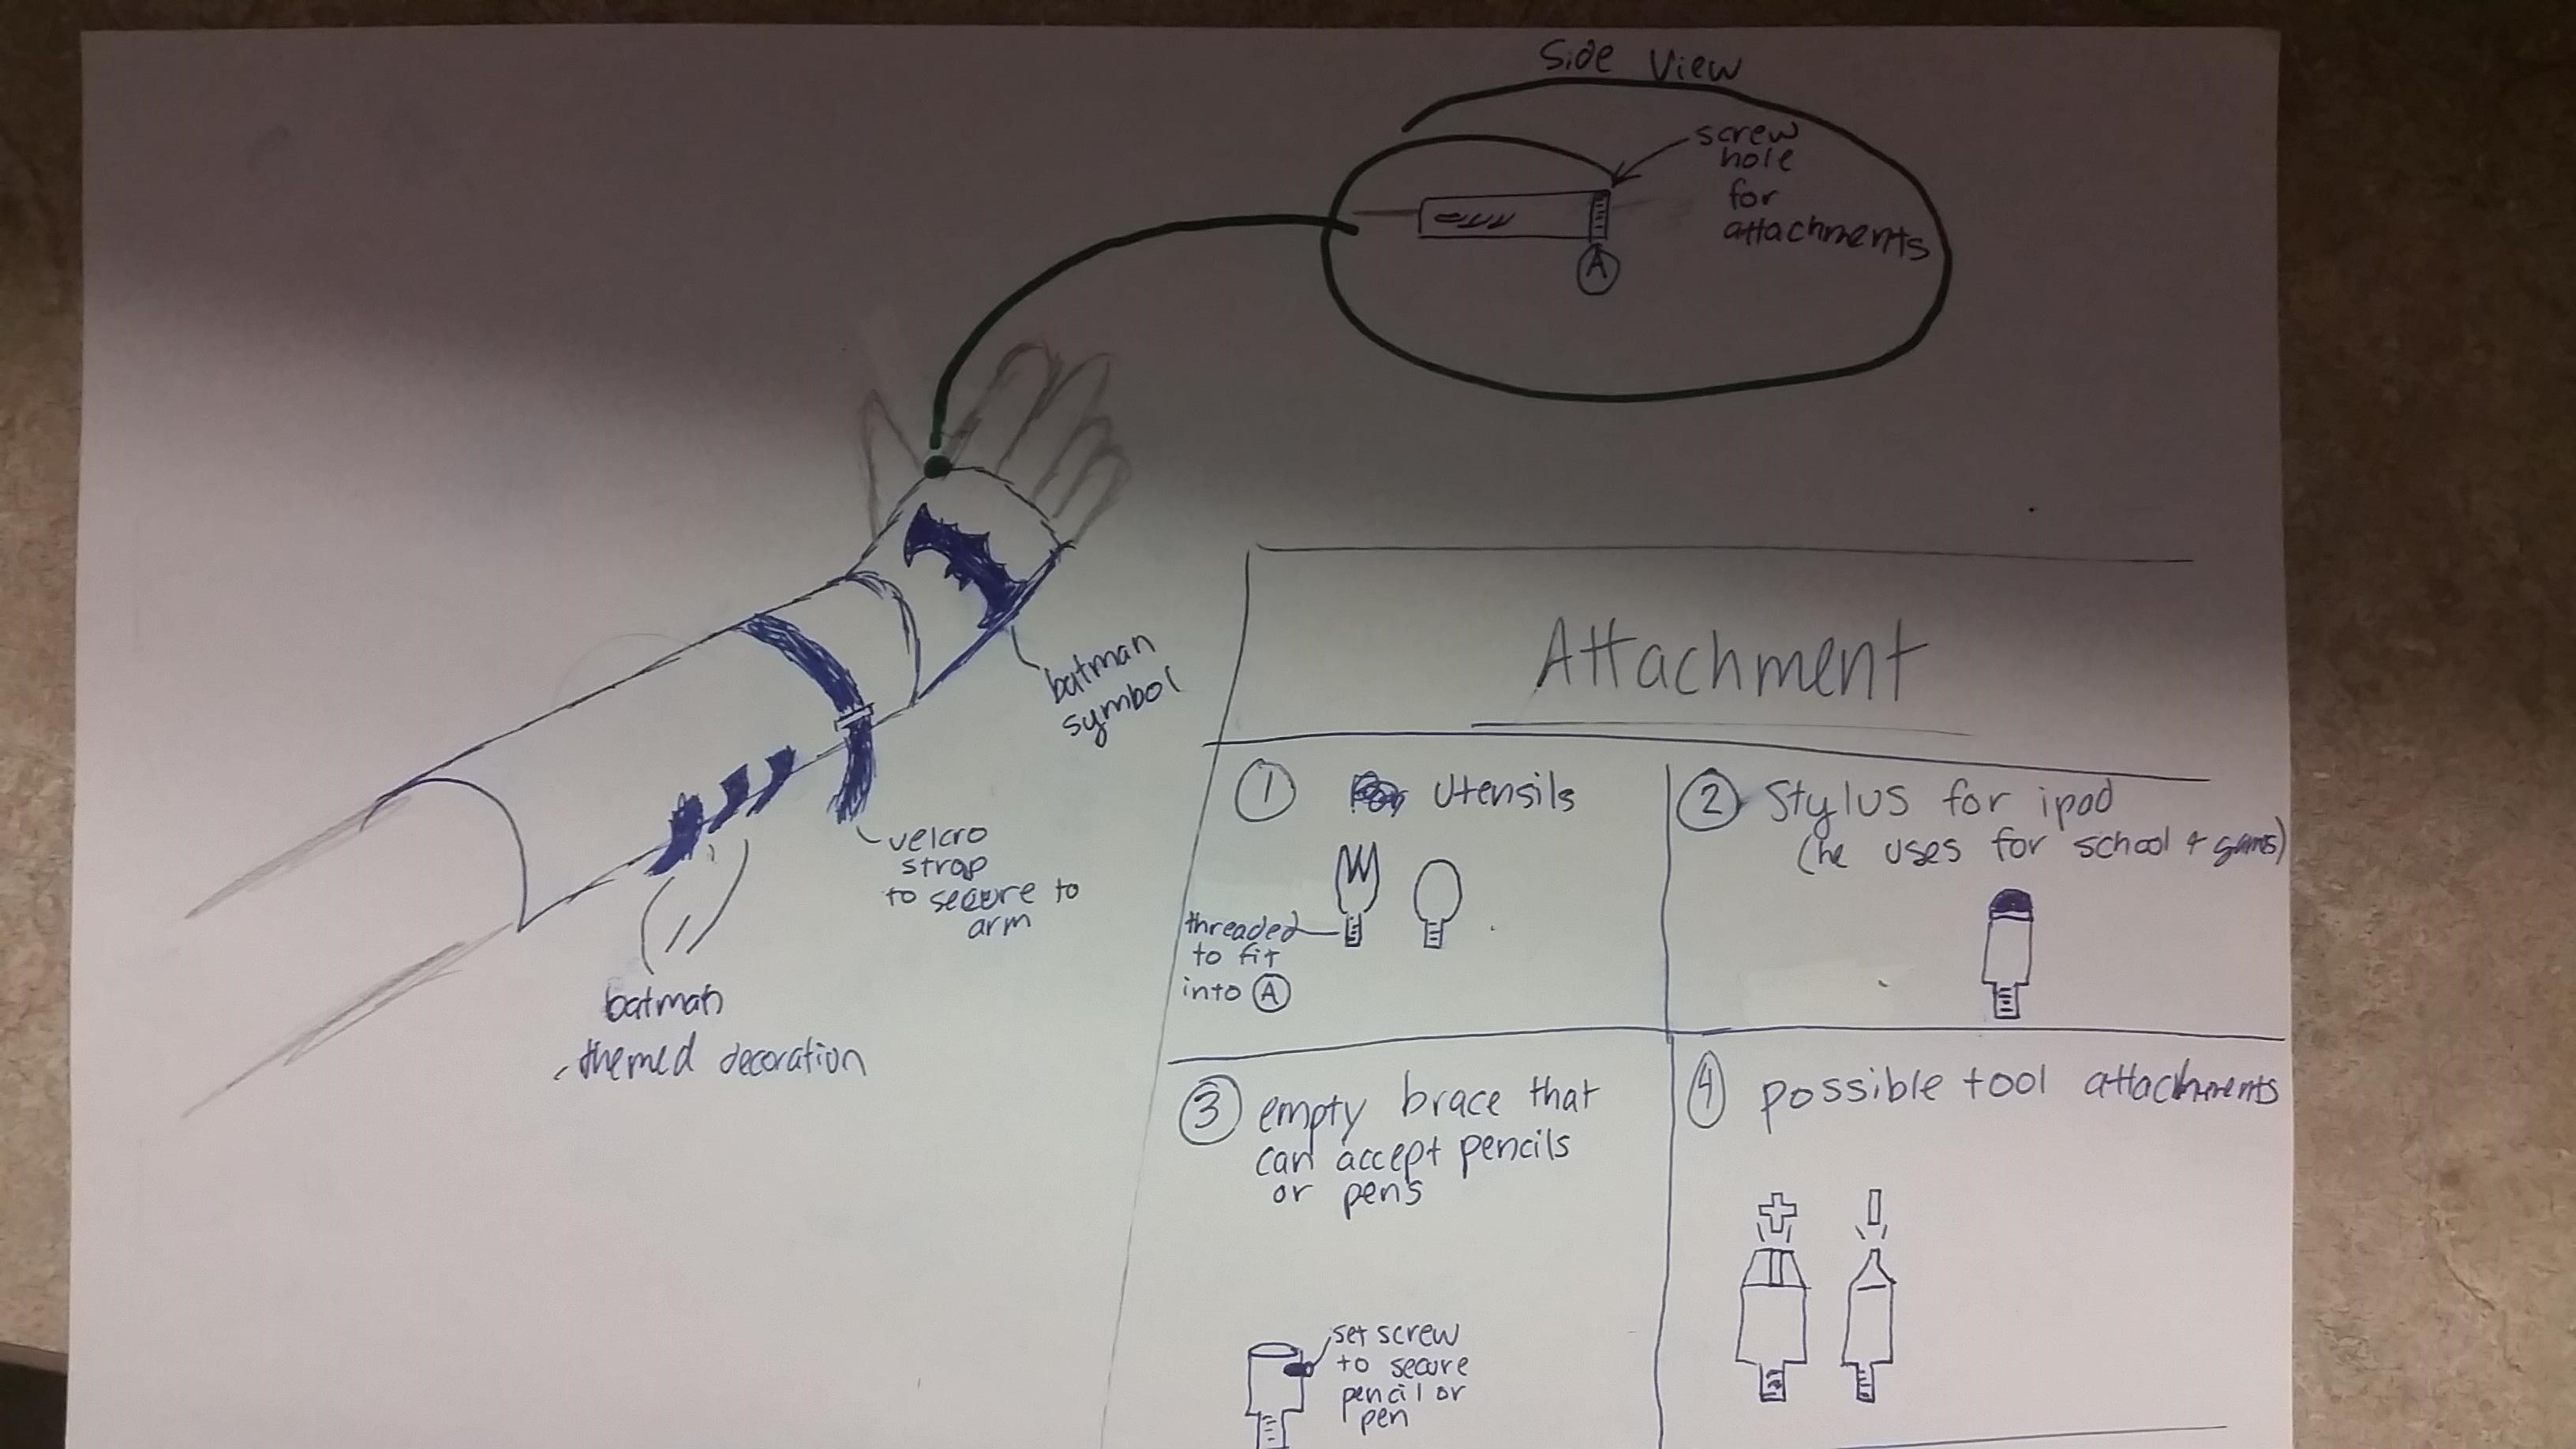 Side View
screw
hole
for
attachments
A
batman
symbol
velcro
strap
to secure to
arm
batman
themed decoration
Attachment
1 Utensils
threaded
to fit
into A
2 Stylus for ipod
(he uses for school + games)
3 empty brace that
can accept pencils
or pens
set screw
to secure
pencil or
pen
4 possible tool attachments